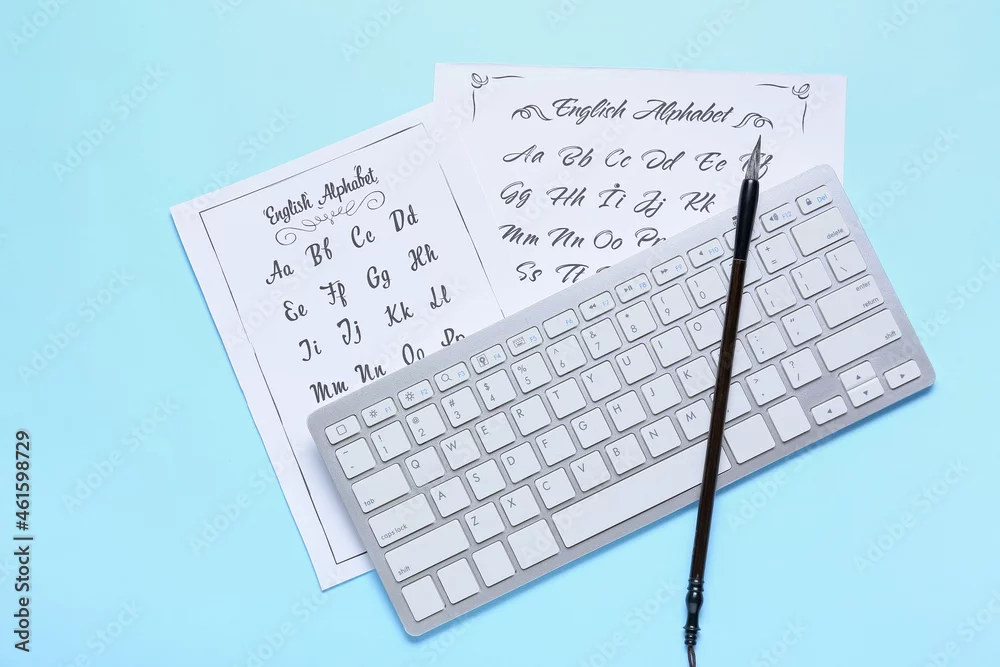 English Alphabet
Aa Bb Cc Dd
Ee Ff Gg Hh
Ii Jj Kk Ll
Mm Nn Oo Pp
English Alphabet
Aa Bb Cc Dd Ee
Gg Hh Ii Jj Kk
Mm Nn Oo
Ss Tt
F1 F2 F3 F4 F5 F6 F7 F8 F9 F10 F12 Del
! 1 @ 2 # 3 $ 4 % 5 ^ 6 & 7 * 8 ( 9 ) 0 + = delete
tab Q W E R T Y U I O P \
caps lock A S D F G H J K L : ; " ' enter return
shift Z X C V B N M > . ? / shift
Adobe Stock | #461598729